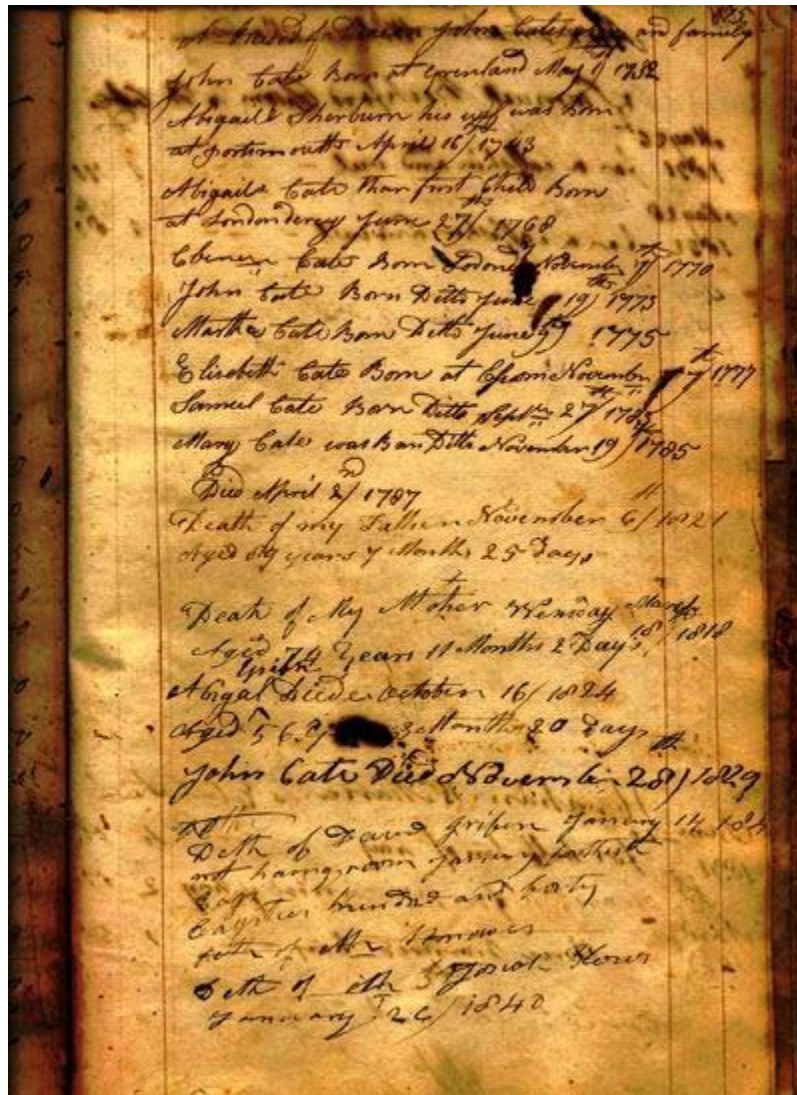 A Record of Deacon John Cates and family
John Cate Born at Greenland May 9 1732
Abigail Sherburn his wif was Born
at portsmouth April 16th/ 1743
Abigail Cate thar first Child Born
at Londonderey June 27th/ 1768
Ebenezer Cate Born November 7th/ 1770
John Cate Born Ditto June 19th) 1773
Martha Cate Born Ditto June 1775
Elisebeth Cate Born at Epsom November 7th/ 1777
Samuel Cate Born Ditto Septr 27th/
Mary Cate was Born Ditto November 19th) 1785
Died April 2nd/ 1787
Death of my Father November 6th/ 1821
Aged 89 years 7 Months 25 Days
Death of My Mother Wensday March
18th/ 1818
Aged 74 Years 11 Months 2 Days
Abigal Diede October 16/ 1824
Aged 56 3 Months 20 Days
John Cate Died November 28th) 1829
Deth of David Grifen January 14
not haing room
hundred and forty
Deth of Josiah
January 26/ 1840